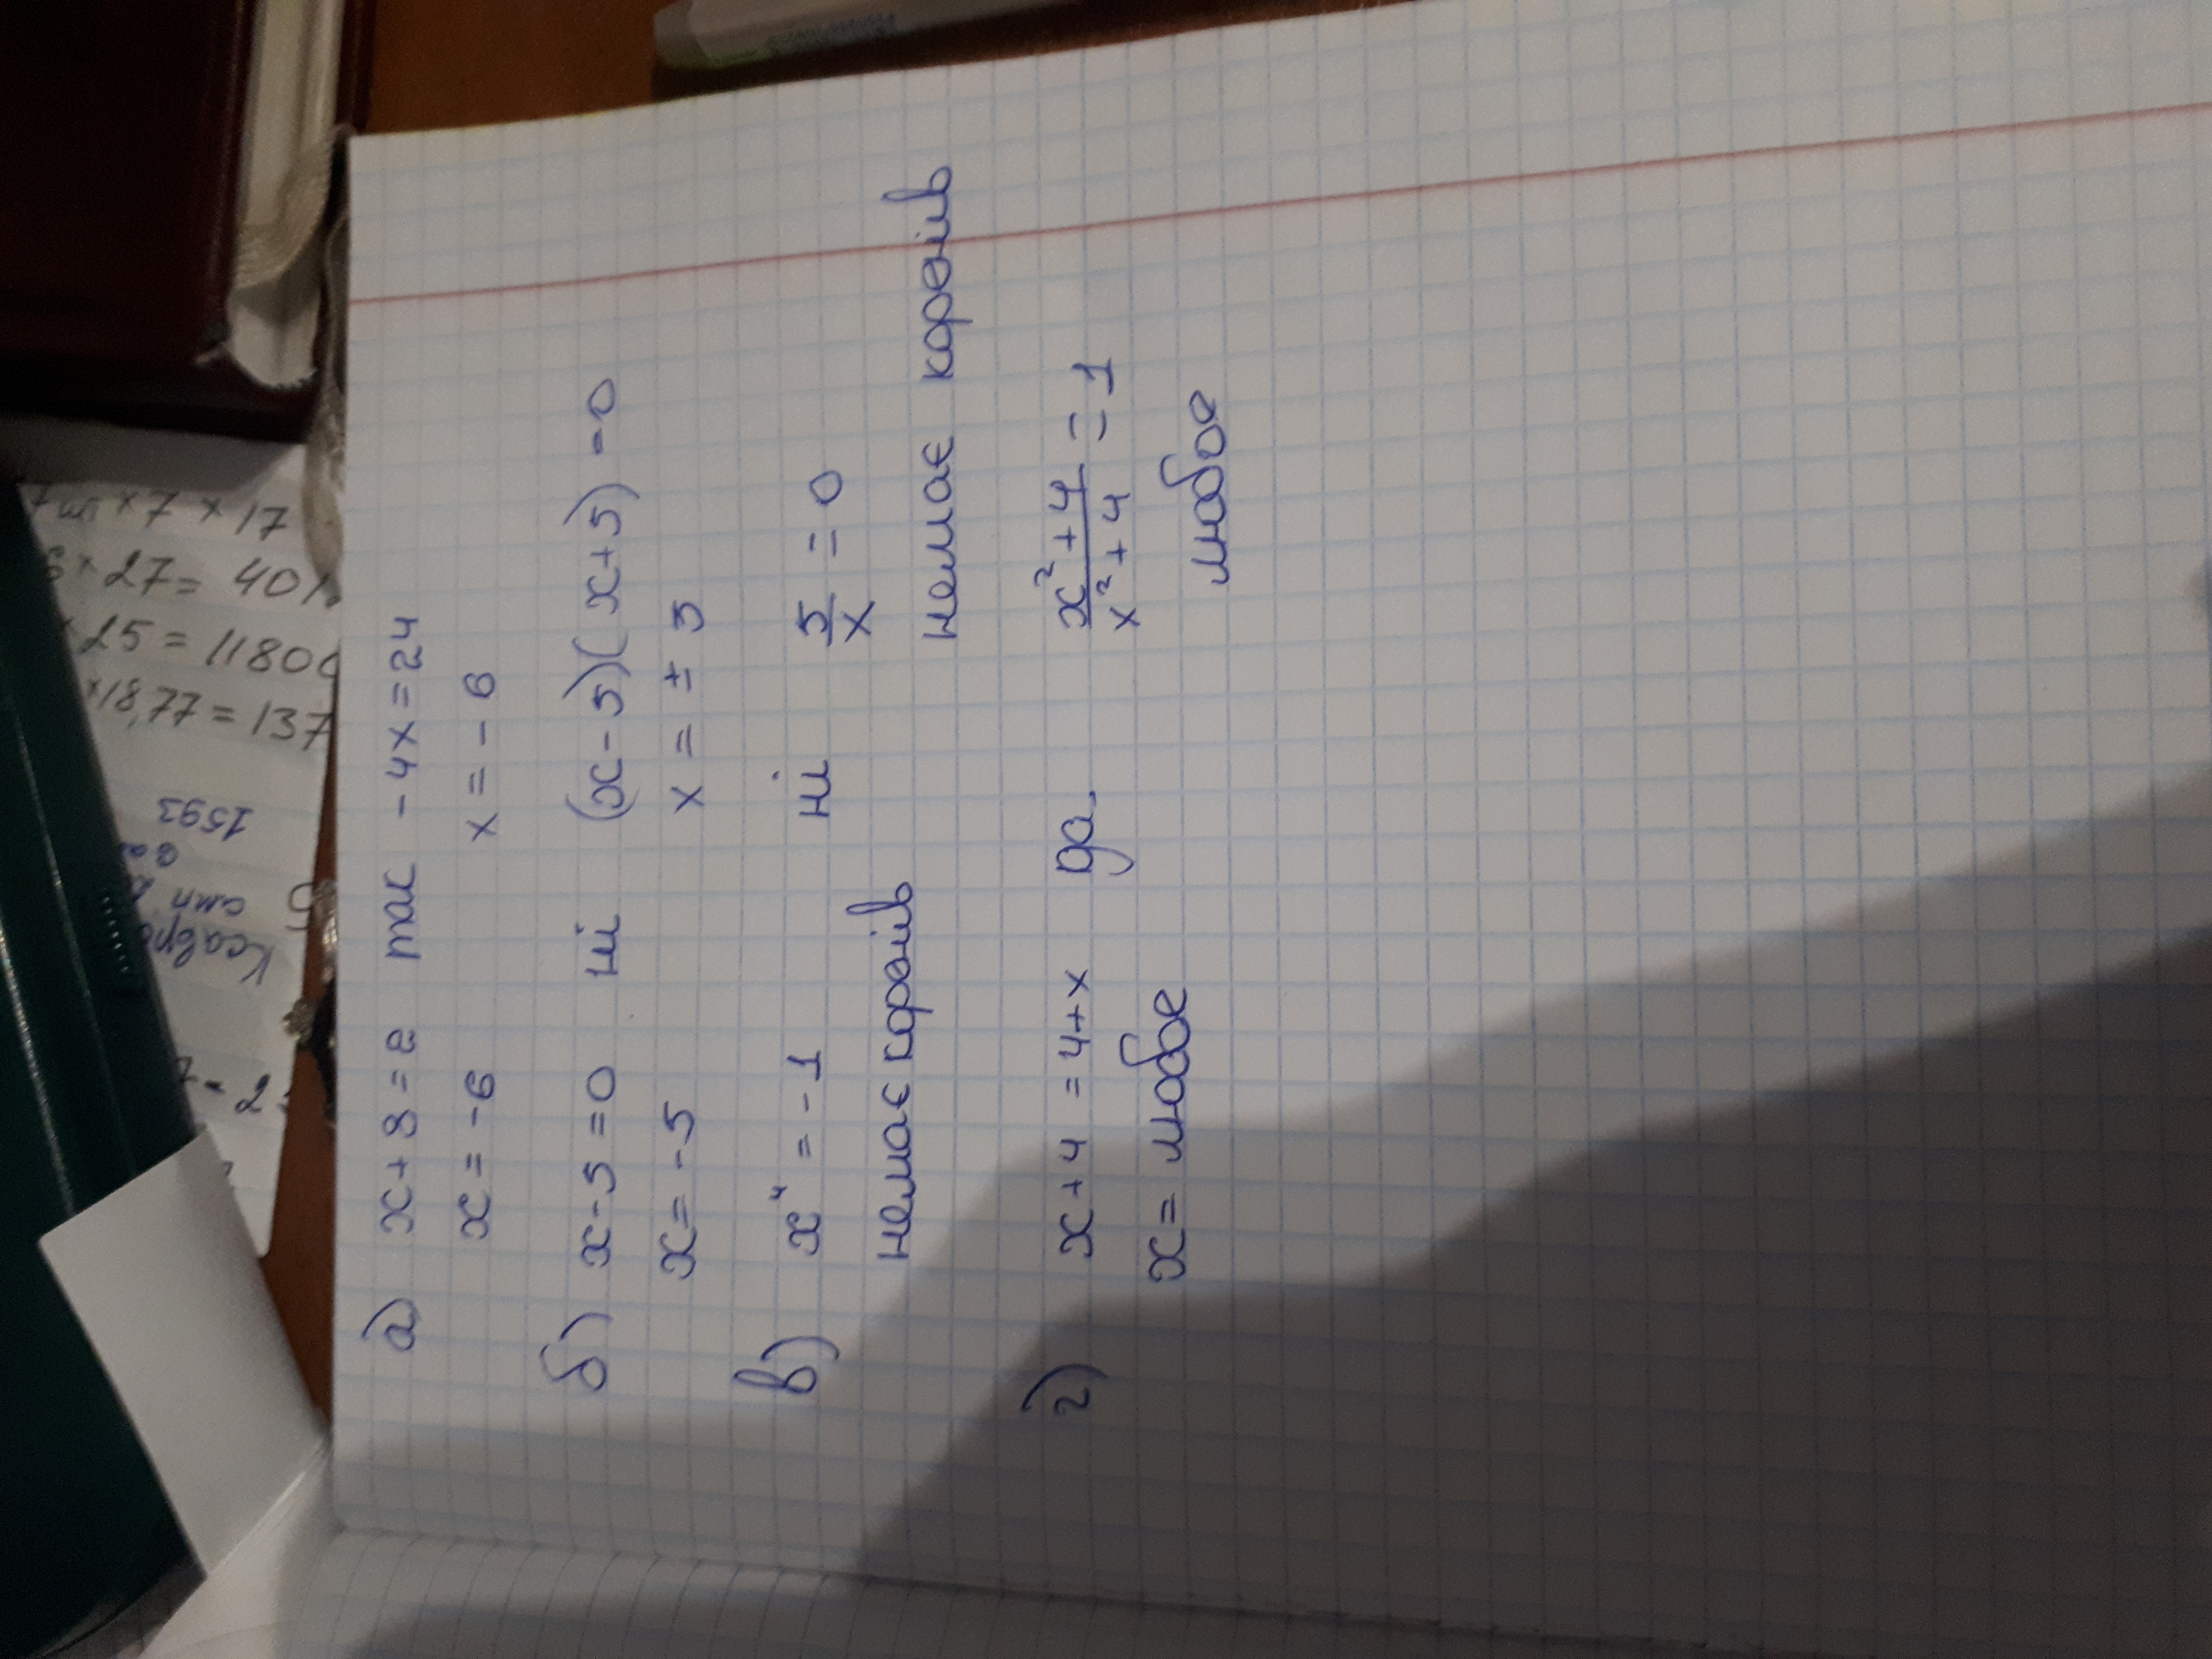 а) x+8=2 так -4x=24
x=-6 x=-6
б) x-5=0 ні (x-5)(x+5)=0
x=-5 x=±5
в) x⁴=-1 ні 5/x=0
немає коренів немає коренів
г) x+4=4+x да x²+4/x²+4=1
x=любое любое
×7×17
×27=
25=1180
×18,77=137
1593